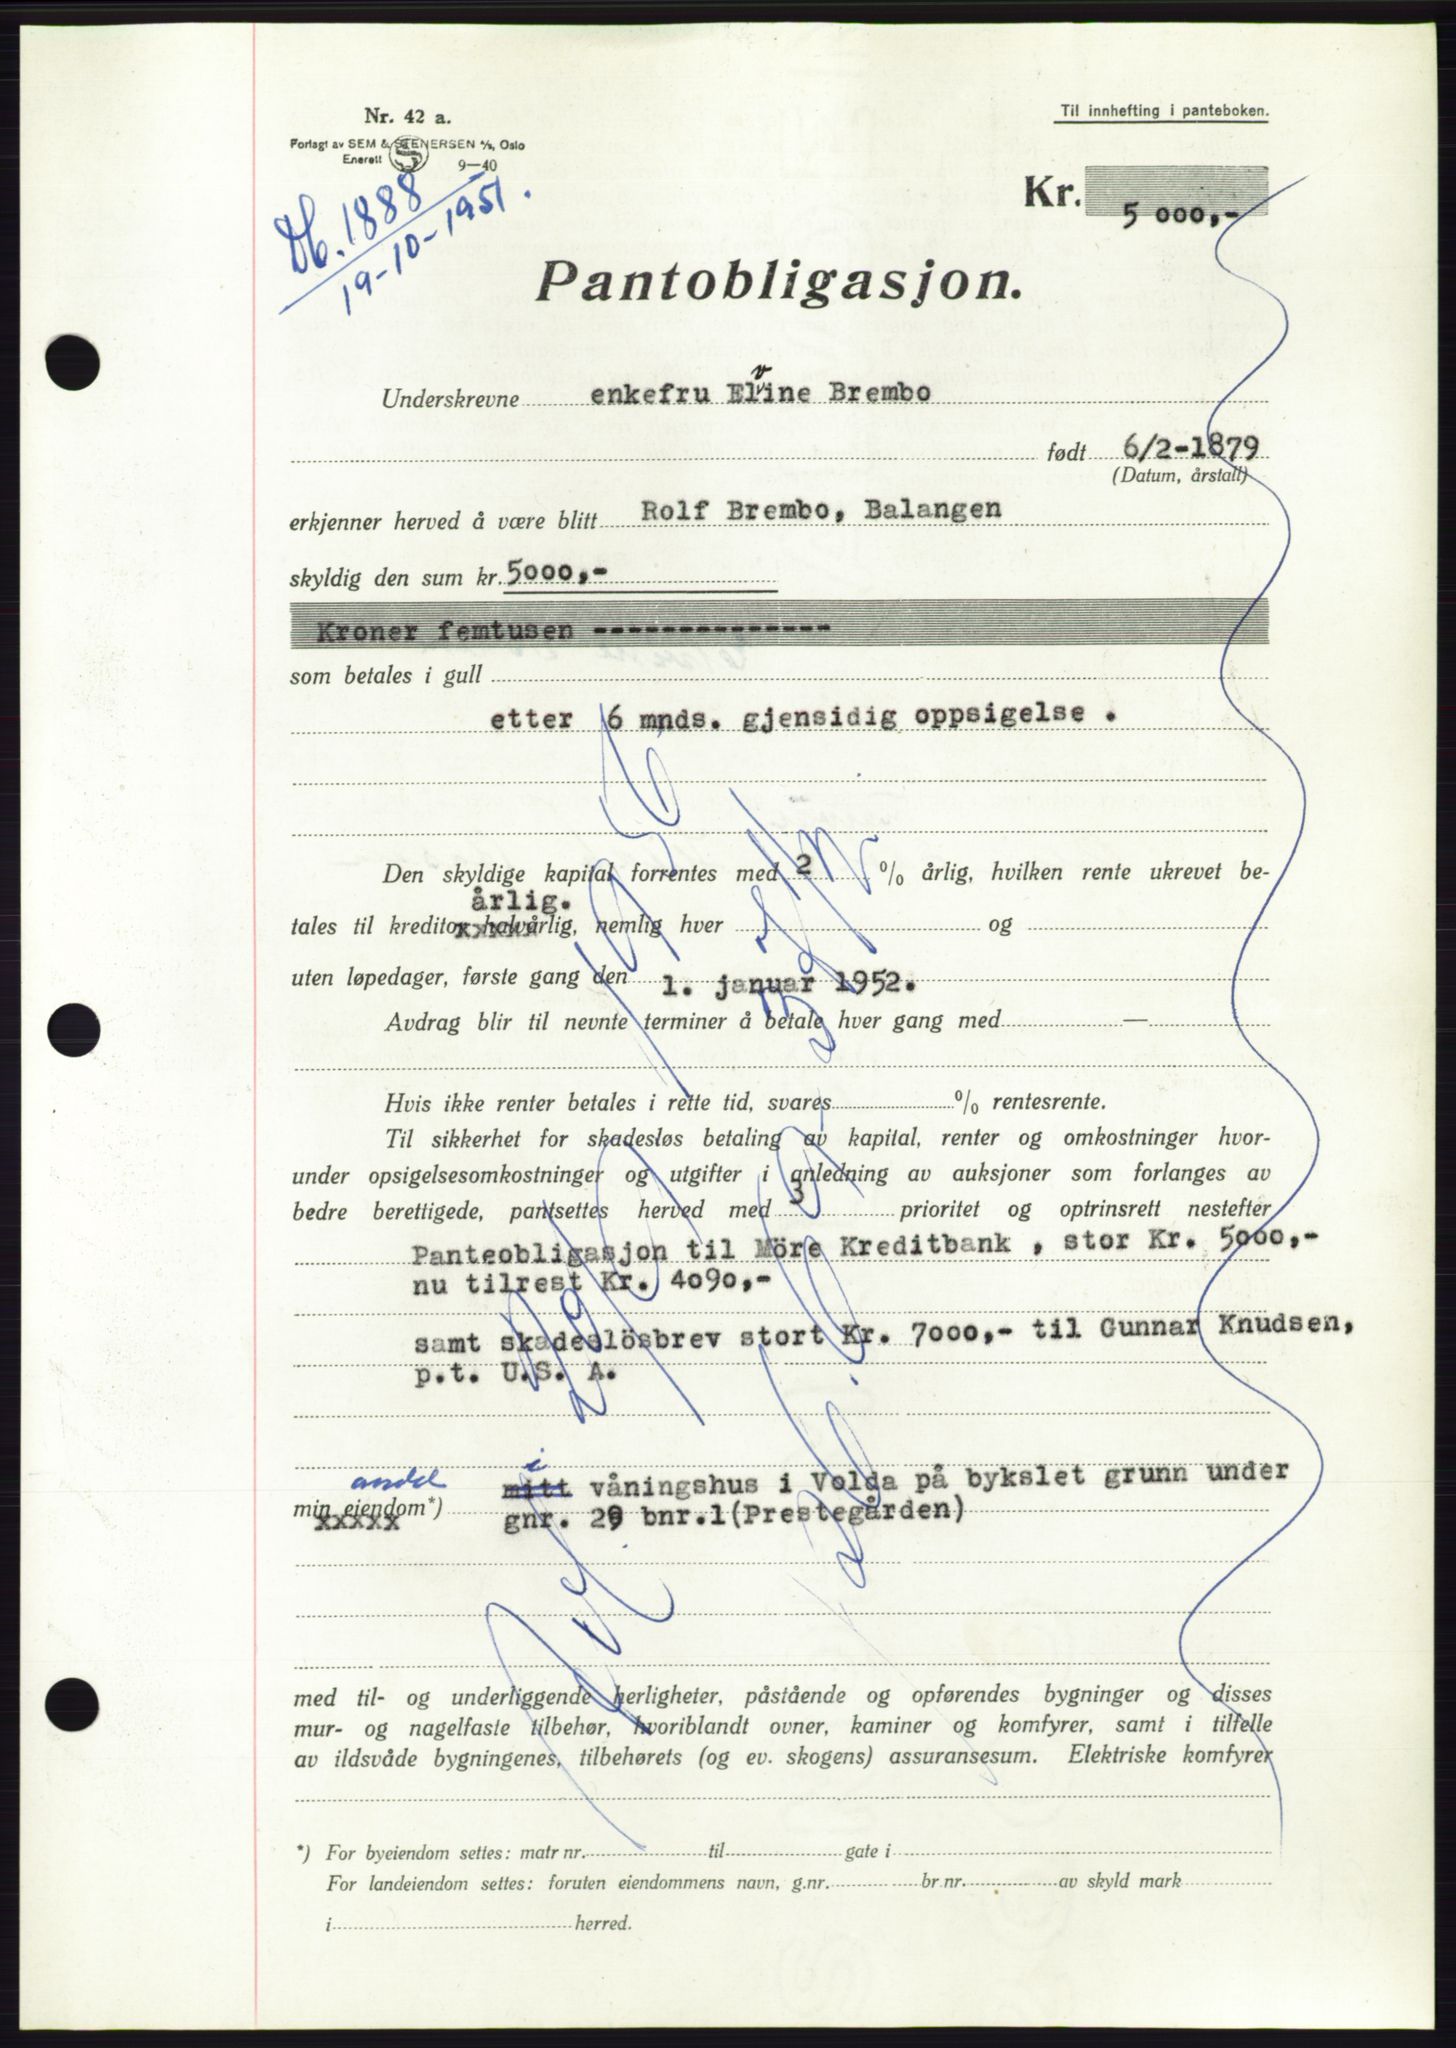 Nr. 42 a.
Forlagt av SEM & STENERSEN A/S, Oslo
Enerett 9—40
Til innhefting i panteboken.
Db. 1888
19-10-1951.
Kr. 5 000,-
Pantobligasjon.
Underskrevne enkefru Elvine Brembo
født 6/2-1879
(Datum, årstall)
erkjenner herved å være blitt Rolf Brembo, Balangen
skyldig den sum kr. 5000,-
Kroner femtusen --------------
som betales i gull
etter 6 mnds. gjensidig oppsigelse .
Den skyldige kapital forrentes med 2 % årlig, hvilken rente ukrevet be-
årlig.
tales til kreditor halvårlig, nemlig hver og
uten løpedager, første gang den 1. januar 1952.
Avdrag blir til nevnte terminer å betale hver gang med —
Hvis ikke renter betales i rette tid, svares % rentesrente.
Til sikkerhet for skadesløs betaling av kapital, renter og omkostninger hvor-
under opsigelsesomkostninger og utgifter i anledning av auksjoner som forlanges av
bedre berettigede, pantsettes herved med 3 prioritet og optrinsrett nestefter
Panteobligasjon til Möre Kreditbank , stor Kr. 5000,-
nu tilrest Kr. 4090,-
samt skadeslösbrev stort Kr. 7000,- til Gunnar Knudsen,
p.t. U.S. A.
andel i
min eiendom*) mitt våningshus i Volda på bykslet grunn under
xxxxx gnr. 29 bnr.1(Prestegården)
med til- og underliggende herligheter, påstående og opførendes bygninger og disses
mur- og nagelfaste tilbehør, hvoriblandt ovner, kaminer og komfyrer, samt i tilfelle
av ildsvåde bygningenes, tilbehørets (og ev. skogens) assuransesum. Elektriske komfyrer
*) For byeiendom settes: matr nr. til gate i
For landeiendom settes: foruten eiendommens navn, g.nr. br nr. av skyld mark
i herred.